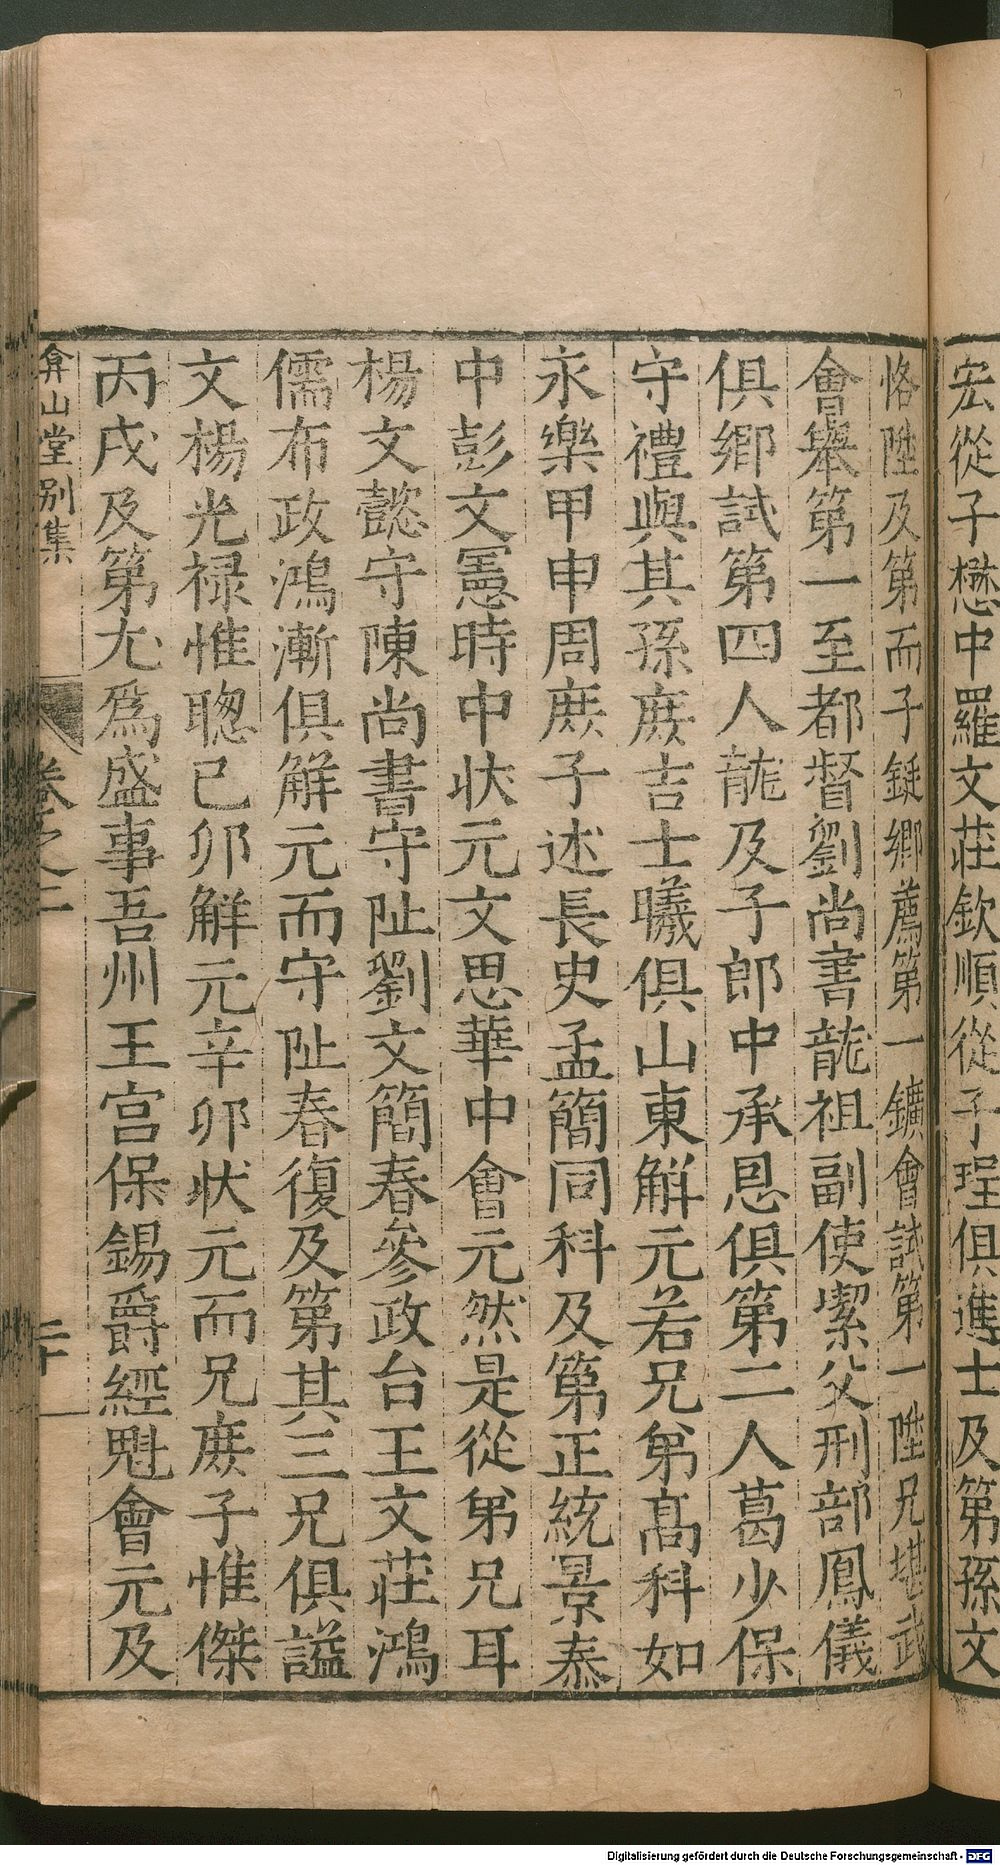 宏從子懋中羅文莊欽順從子珵俱進士及第孫文
恪陞及第而子鋌鄉薦第一鑛會試第一陞兄堪武
會舉第一至都督劉尚書龍祖副使潔父刑部鳳儀
俱鄉試第四人龍及子郎中承恩俱第二人葛少保
守禮與其孫庶吉士曦俱山東解元若兄弟高科如
永樂甲申周庶子述長史孟簡同科及第正統景泰
中彭文憲時中状元文思華中會元然是從弟兄耳
楊文懿守陳尚書守阯劉文簡春參政台王文莊鴻
儒布政鴻漸俱解元而守阯春復及第其三兄俱謚
文楊光禄惟聰己卯解元辛卯状元而兄庶子惟傑
丙戌及第尤爲盛事吾州王宫保錫爵經魁會元及
弇山堂别集 卷之二 二十
Digitalisierung gefördert durch die Deutsche Forschungsgemeinschaft - DFG